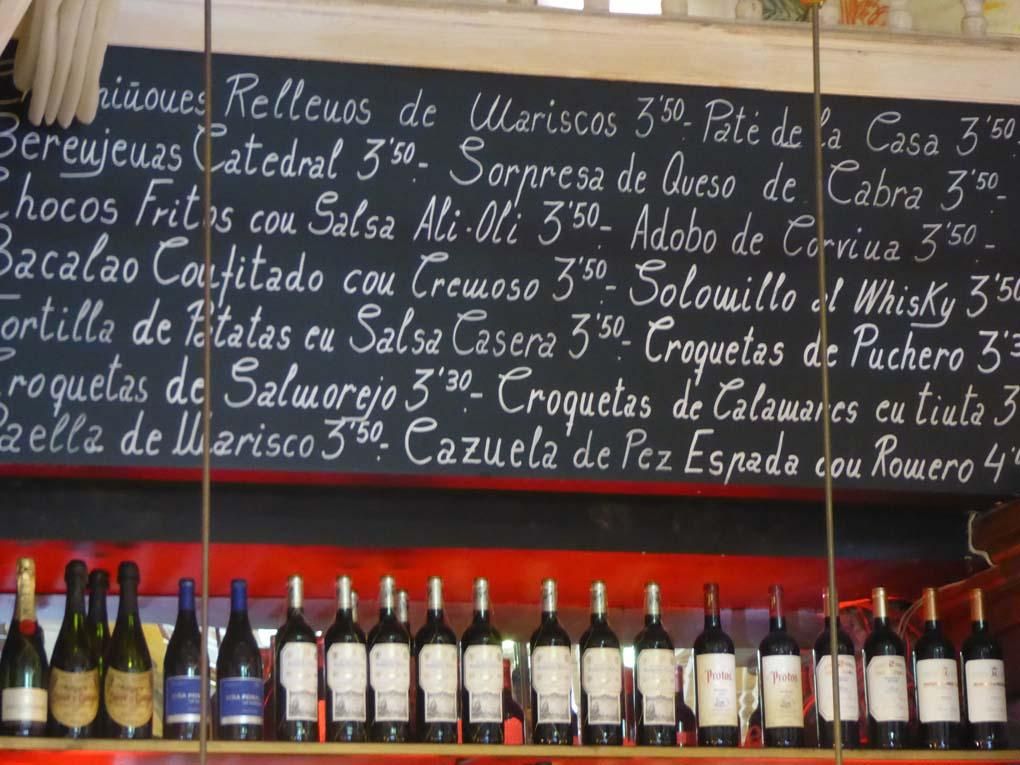 Rellenos de Mariscos 3'50.- Paté de la Casa 3'50.
Berenjenas Catedral 3'50.- Sorpresa de Queso de Cabra 3'50.-
Chocos Fritos con Salsa Ali-Oli 3'50.- Adobo de Corvina 3'50.-
Bacalao Confitado con Cremoso 3'50.- Solomillo al Whisky 3'50
Tortilla de Patatas en Salsa Casera 3'50.- Croquetas de Puchero 3'3
Croquetas de Salmorejo 3'30.- Croquetas de Calamares en tinta 3
Paella de Marisco 3'50.- Cazuela de Pez Espada con Romero 4'
Protos
Protos